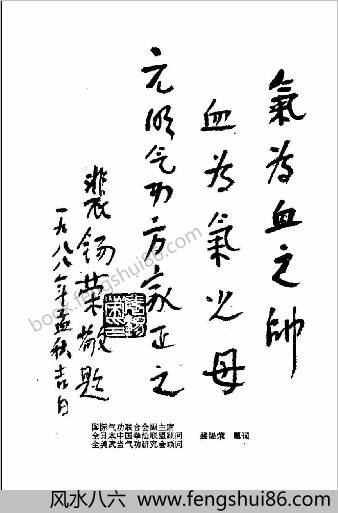 氣為血之帥
血為氣之母
元气功方家正之
裴錫榮敬題
一九八八年孟秋吉日
国际气功联合会副主席
全日本中国拳法联盟顾问
全美武当气功研究会顾问
裴锡荣 题词
book.fengshui86.com
风水八六 www.fengshui86.com